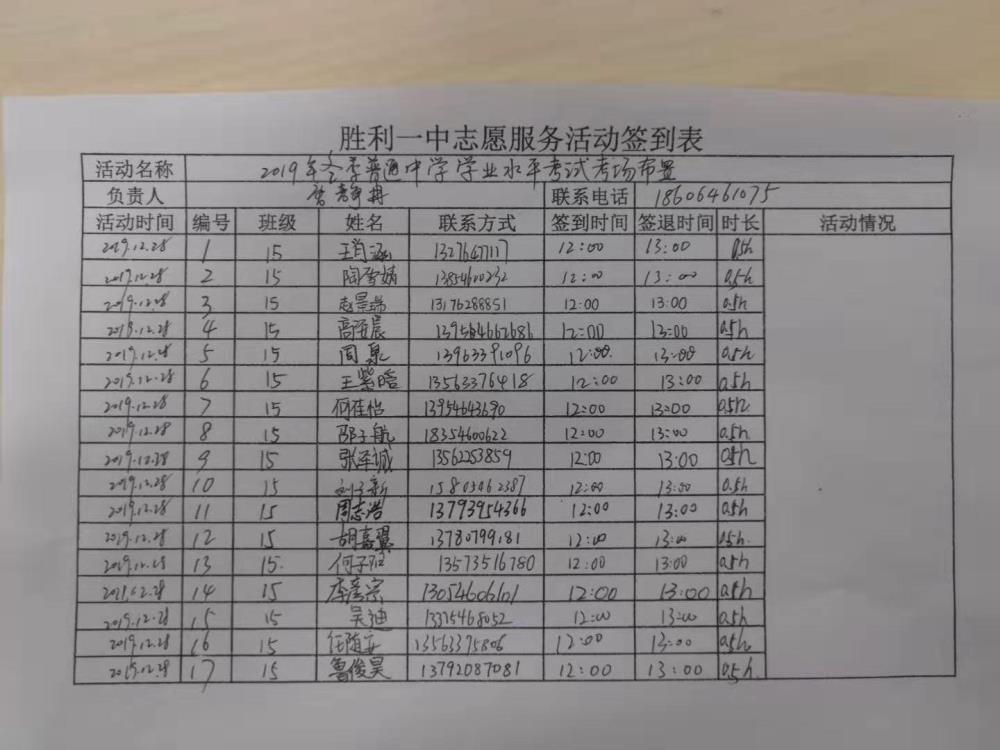 胜利一中志愿服务活动签到表
活动名称 2019年冬季普通中学学业水平考试考场布置
负责人 联系电话 18606461075
活动时间 编号 班级 姓名 联系方式 签到时间 签退时间 时长 活动情况
2019.12.28 1 15 王肖涵 1327647117 12:00 13:00 0.5h
2019.12.28 2 15 13854600232 12:00 13:00 0.5h
2019.12.28 3 15 赵景瑞 13176288851 12:00 13:00 0.5h
2019.12.28 4 15 12:00 13:00 0.5h
2019.12.28 5 15 周泉 13963391096 12:00 13:00 0.5h
2019.12.28 6 15 王紫晗 13563376418 12:00 13:00 0.5h
2019.12.28 7 15 何佳怡 13954643690 12:00 13:00 0.5h
2019.12.28 8 15 邵子航 18354600622 12:00 13:00 0.5h
2019.12.28 9 15 张泽诚 13562253859 12:00 13:00 0.5h
2019.12.28 10 15 15805462387 12:00 13:00 0.5h
2019.12.28 11 15 周志浩 13793954366 12:00 13:00 0.5h
2019.12.28 12 15 胡嘉翼 13780799181 12:00 13:00 0.5h
2019.12.28 13 15. 13573516780 12:00 13:00 0.5h
14 15 李彦宗 13054606101 12:00 13:00 0.5h
2019.12.28 15 15 吴迪 13375468052 12:00 13:00 0.5h
2019.12.28 16 15 任随安 13563375806 12:00 13:00 0.5h
2019.12.28 17 15 鲁俊昊 13792087081 12:00 13:00 0.5h